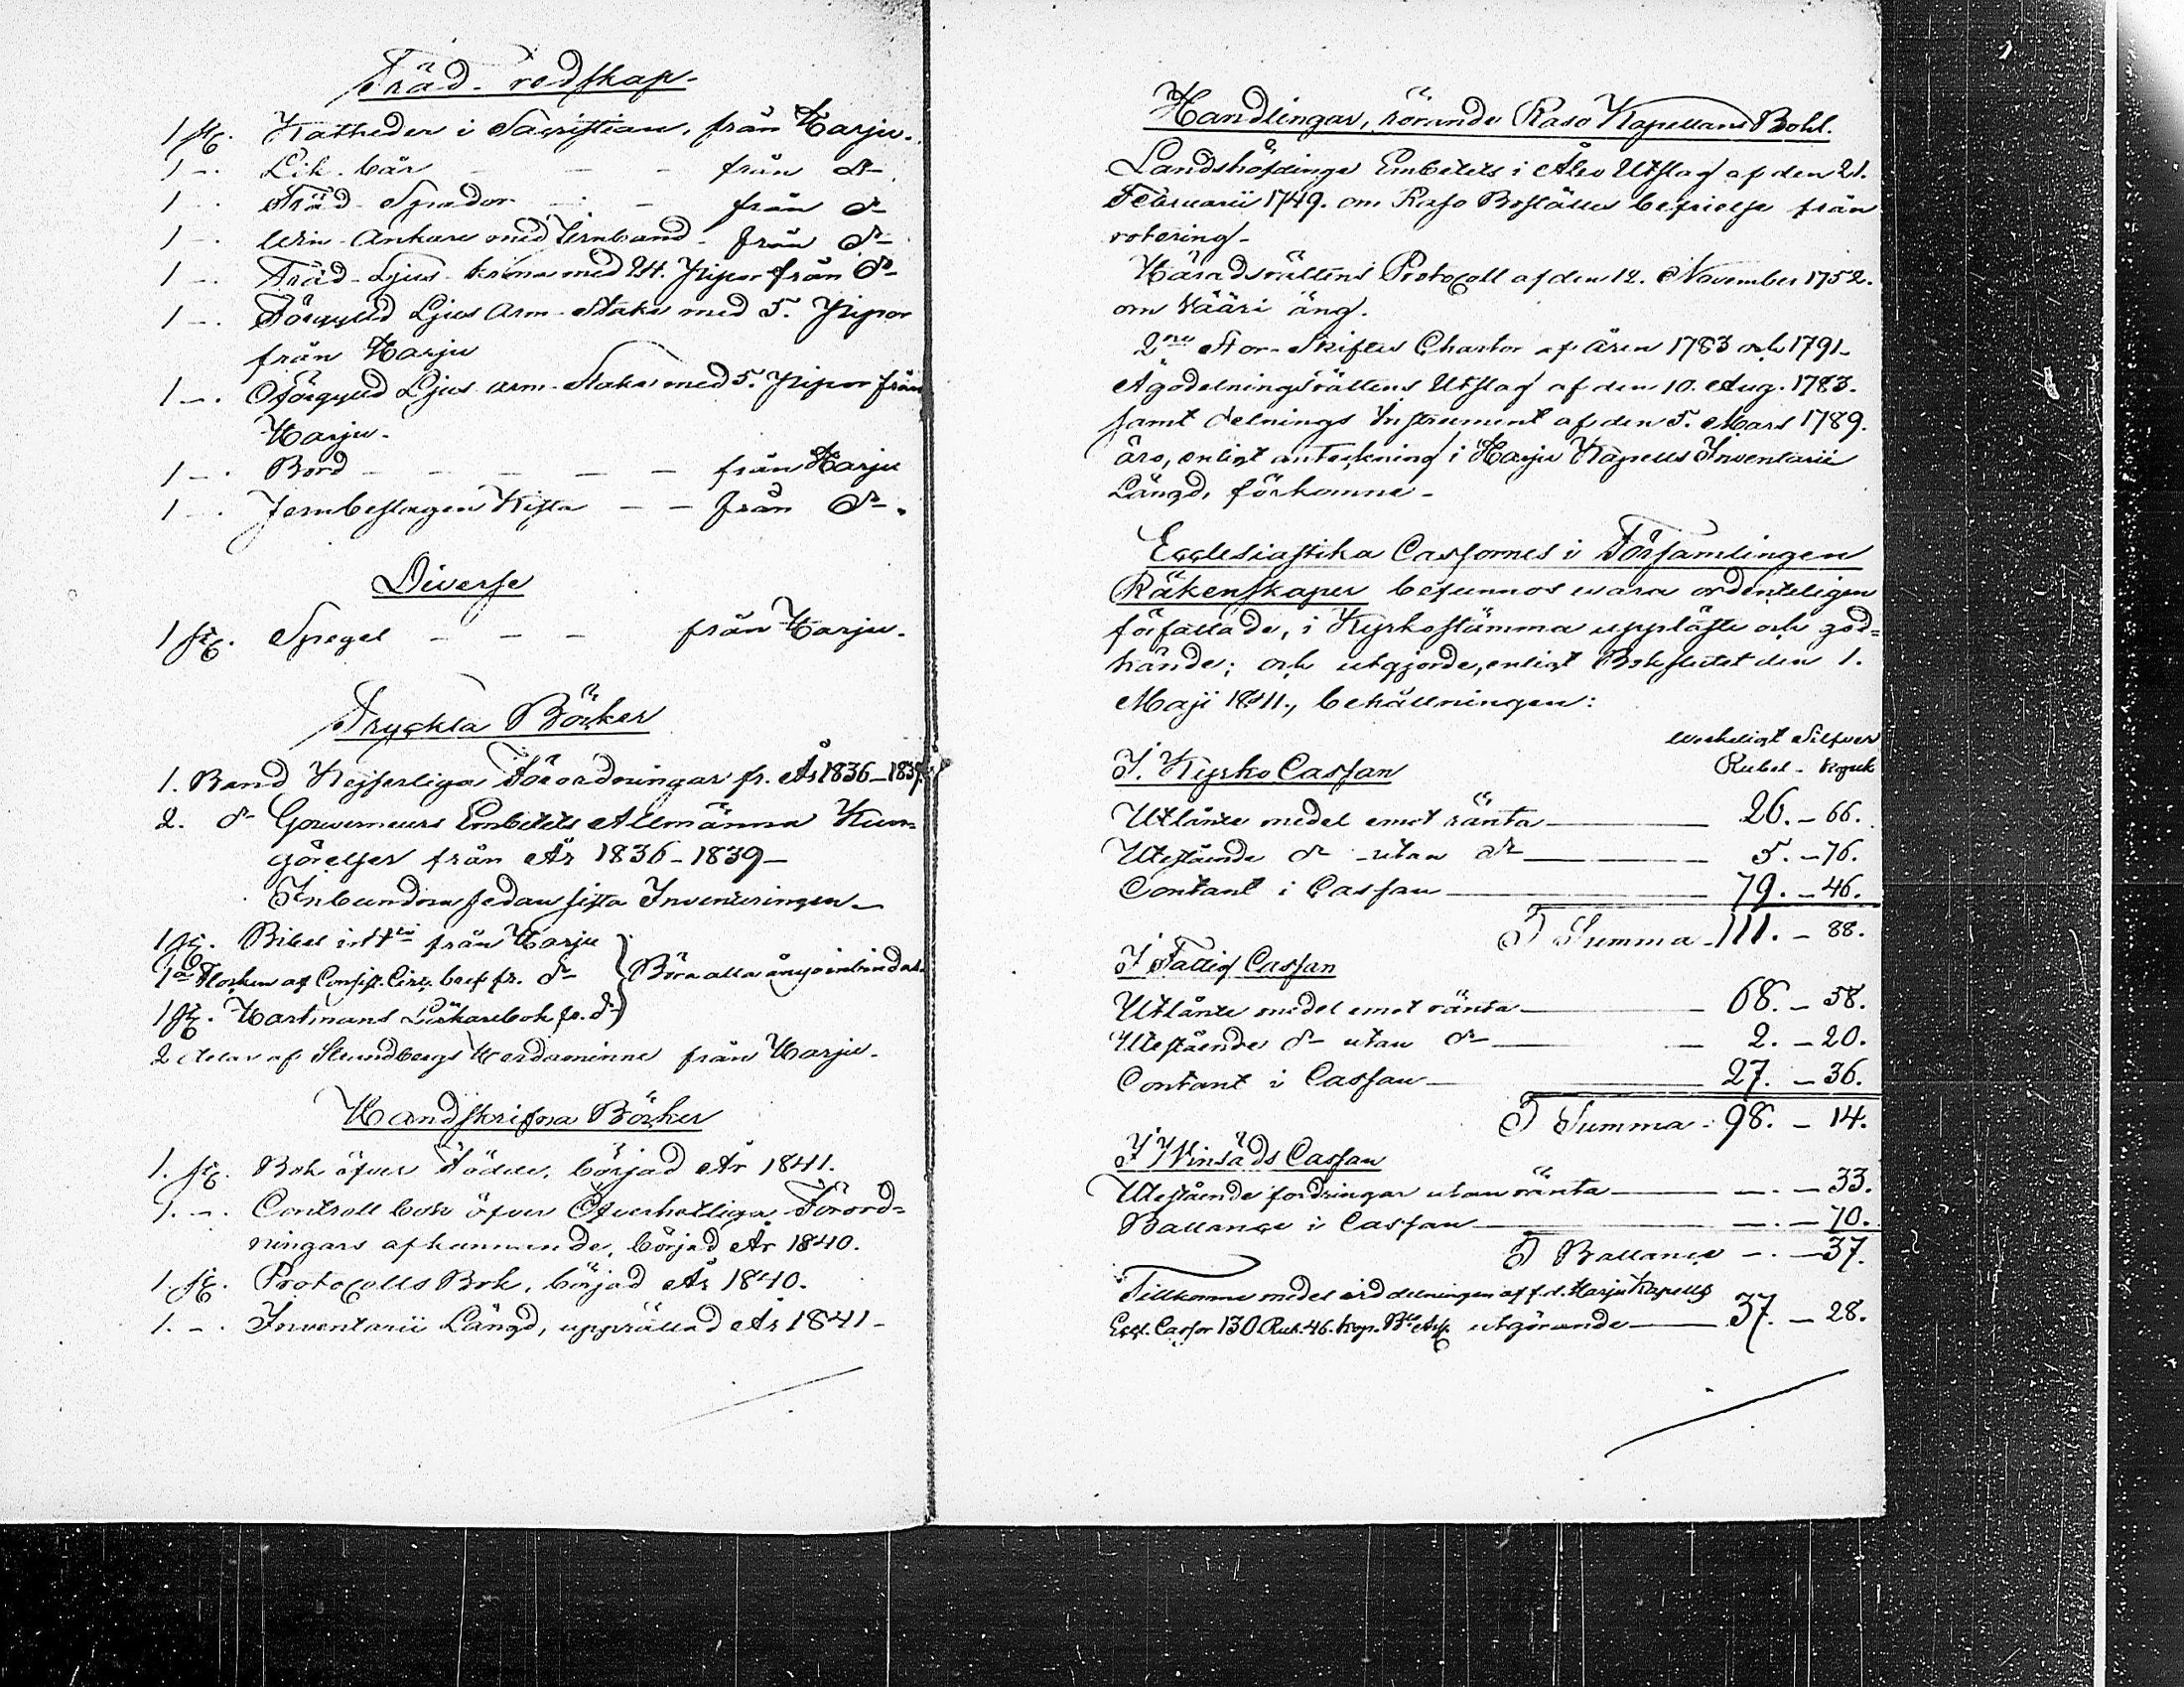 Träd-redskap-
1 st. Katheder i Sacristian, från Harju.
1 -. Lik-bår - - från d:o
1 -. Träd-Spador - - från d:o
1 -. Win-Ankare med Jernband - från d:o
1 -. Träd-Ljus-krona med 24. Pipor från d:o
1 -. Förgyld Ljus Arm-Stake med 5. Pipor
från Harju
1 -. Oförgyld Ljus-arm-Stake med 5. Pipor från
Harju.
1 -. Bord - - - - - från Harju
1 -. Jernbeslagen Kista - - från d:o.
Diverse
1 st. Spegel - - - från Harju.
Tryckta Böcker
1. Band Kejserliga Förordningar fr. År 1836-1839.
2. d:o Gouverneurs Embetets Allmänna Kun-
görelser från År 1836-1839-
Inbundna sedan sista Inventeringen-
1 st. Bibel in 4:to från Harju
1 Flocken af Consist. Circ. bref fr. d:o } Böra alla ånyo inbindas.
1 st. Hartmans Läkarebok fr. d:o
2 delar af Stundbergs Herdaminne från Harju-
Handskrifna Böcker
1. st. Bok öfver Födde, börjad År 1841.
1. -. Controll bok öfver Öfverhetliga Förord=
ningars afkunnande, börjad År 1840.
1. st. Protocolls Bok, börjad År 1840.
1. -. Inventarii Längd, upprättad År 1841-
Handlingar, rörande Raso Kapellans Bohl.
Landshöfdinge Embetets i Åbo Utslag af den 21.
Februarii 1749. om Raso Boställes befrielse från
rotering-
Häradsrättens Protocoll af den 12. November 1752.
om Vääri äng.
2:ne Stor-Skiftes Chartor af Åren 1783 och 1791-
Ägodelningsrättens Utslag af den 10. Aug. 1783.
samt delnings Instrument af den 5. Mars 1789.
äro, enligt anteckning i Harju Kapells Inventarii
Längd, förkomne-
Ecclesiastika Cassornes i Församlingen
Räkenskaper befunnos wara ordenteligen
författade, i Kyrkostämma uppläste och god=
kände; och utgjorde, enligt Bokslutet den 1.
Maji 1841., behållningen:
Werkeligt Silfver
I. Kyrko Cassan Rubel - Kopek
Utlånte medel emot ränta 26. - 66.
Utestående d:o utan d:o 5. - 76.
Contant i Cassan 79. - 46.
Summa 111. - 88.
I Fattig Cassan
Utlånte medel emot ränta 68. - 58.
Utestående d:o utan d:o 2. - 20.
Contant i Cassan 27. - 36.
Summa - 98. - 14.
I Winsäds Cassan
Utestående fordringar utan ränta -. - 33.
Ballance i Cassan -. - 70.
Ballance -. - 37.
Tillkomne medel wid delningen af f.d. Harju Kapells
Eccl. Cassor 130 Rub. 46. Kop. B:co Ass. utgörande 37. - 28.